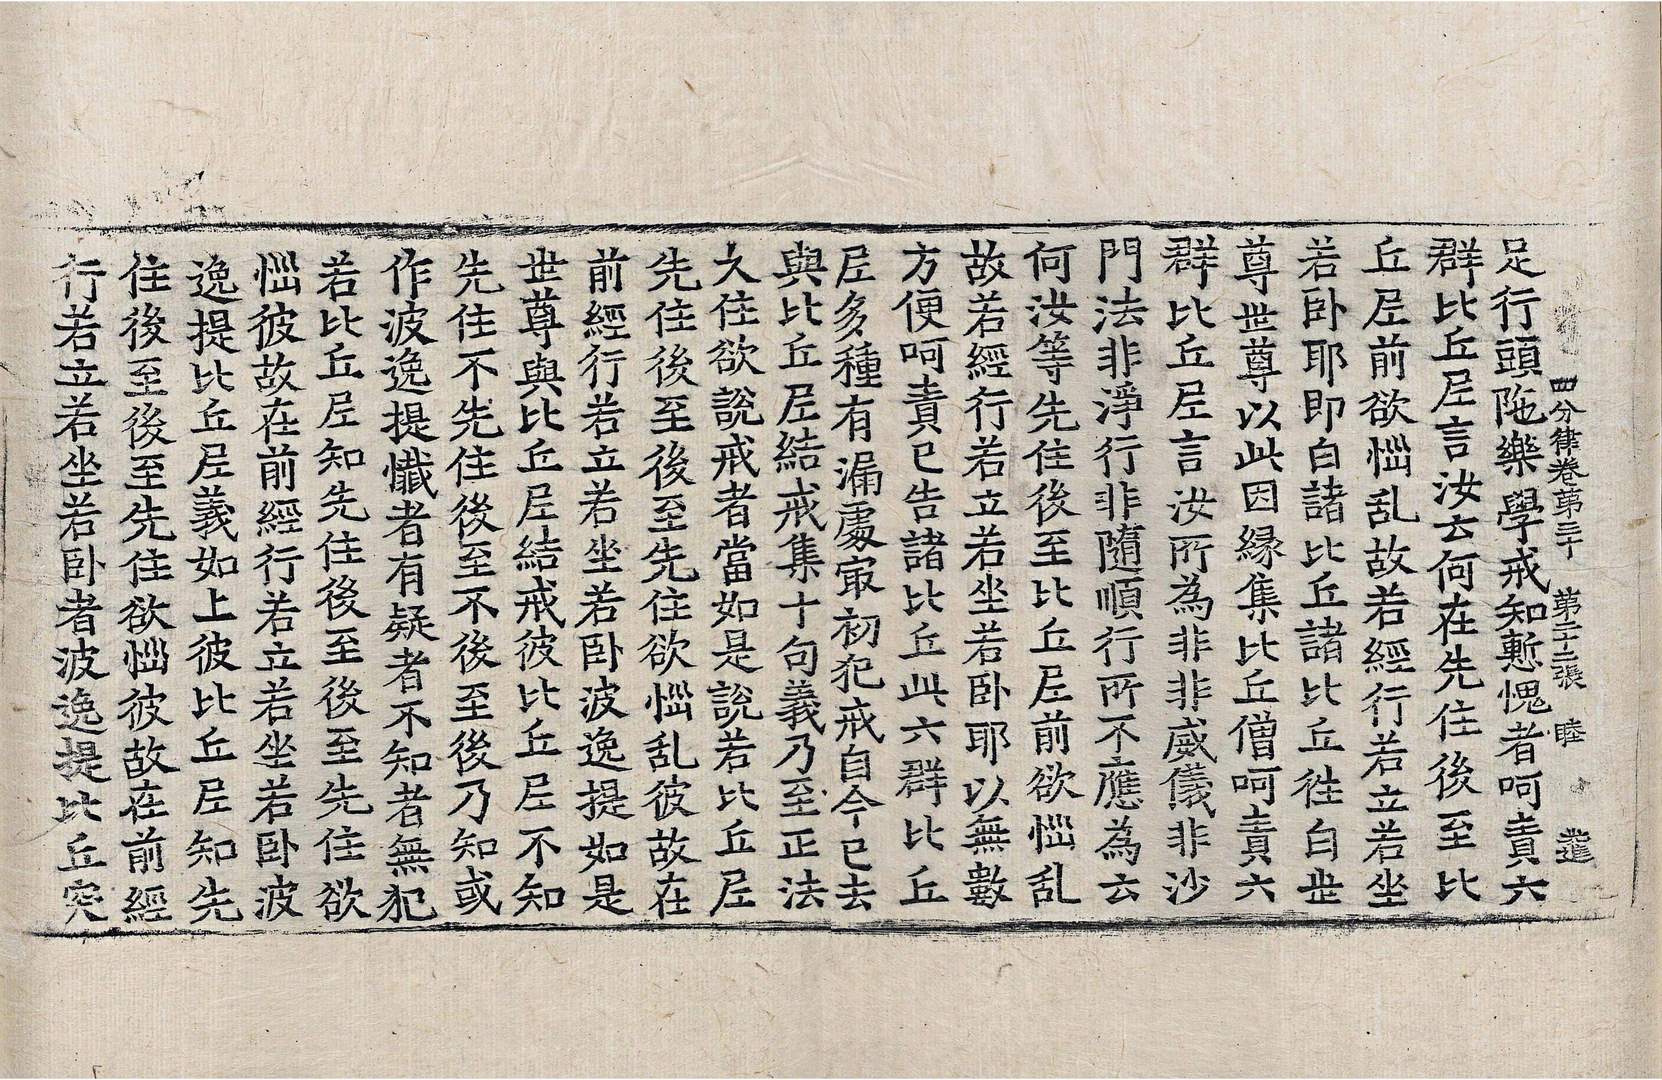 四分律卷第三十 第二十二張 睦 進
足行頭陁樂學戒知慙愧者呵責六
群比丘尼言汝云何在先住後至比
丘尼前欲惱乱故若經行若立若坐
若卧耶即白諸比丘諸比丘徃白世
尊世尊以此因縁集比丘僧呵責六
群比丘尼言汝所為非非威儀非沙
門法非淨行非隨順行所不應為云
何汝等先住後至比丘尼前欲惱乱
故若經行若立若坐若卧耶以無數
方便呵責已告諸比丘此六群比丘
尼多種有漏處冣初犯戒自今已去
與比丘尼結戒集十句義乃至正法
久住欲說戒者當如是說若比丘尼
先住後至後至先住欲惱乱彼故在
前經行若立若坐若卧波逸提如是
世尊與比丘尼結戒彼比丘尼不知
先住不先住後至不後至後乃知或
作波逸提懺者有疑者不知者無犯
若比丘尼知先住後至後至先住欲
惱彼故在前經行若立若坐若卧波
逸提比丘尼義如上彼比丘尼知先
住後至後至先住欲惱彼故在前經
行若立若坐若卧者波逸提比丘突